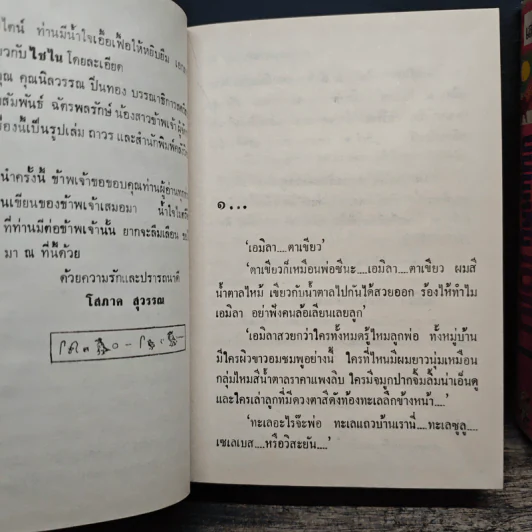 ไตน์ ท่านมีน้ำใจเอื้อเฟื้อให้หยิบยืม
ยวกับ ไซไน โดยละเอียด
คุณ คุณนิลวรรณ ปิ่นทอง บรรณาธิการ
สัมพันธ์ ฉัตรพลรักษ์ น้องสาวข้าพเจ้าผู้
รื่องนี้เป็นรูปเล่ม ถาวร และสำนักพิมพ์
นำครั้งนี้ ข้าพเจ้าขอขอบคุณท่านผู้อ่าน
นเขียนของข้าพเจ้าเสมอมา น้ำใจไมตรี
ที่ท่านมีต่อข้าพเจ้านั้น ยากจะลืมเลือน
มา ณ ที่นี้ด้วย
ด้วยความรักและปรารถนาดี
โสภาค สุวรรณ
๑...
'เอมิลา....ตาเขียว'
'ตาเขียวก็เหมือนพ่อซีนะ....เอมิลา....ตาเขียว ผมสี
น้ำตาลไหม้ เขียวกับน้ำตาลไปกันได้สวยออก ร้องไห้ทำไม
เอมิลา อย่าฟังคนล้อเลียนเลยลูก'
'เอมิลาสวยกว่าใครทั้งหมดรู้ไหมลูกพ่อ ทั้งหมู่บ้าน
มีใครผิวขาวอมชมพูอย่างนี้ ใครที่ไหนมีผมยาวนุ่มเหมือน
กลุ่มไหมสีน้ำตาลราคาแพงลิบ ใครมีจมูกปากจิ้มลิ้มน่าเอ็นดู
และใครเล่าลูกที่มีดวงตาสีดังท้องทะเลลึกข้างหน้า....'
'ทะเลอะไรจ๊ะพ่อ ทะเลแถวบ้านเรานี่....ทะเลซูลู...
เซเลเบส....หรือวิสะยัน....'